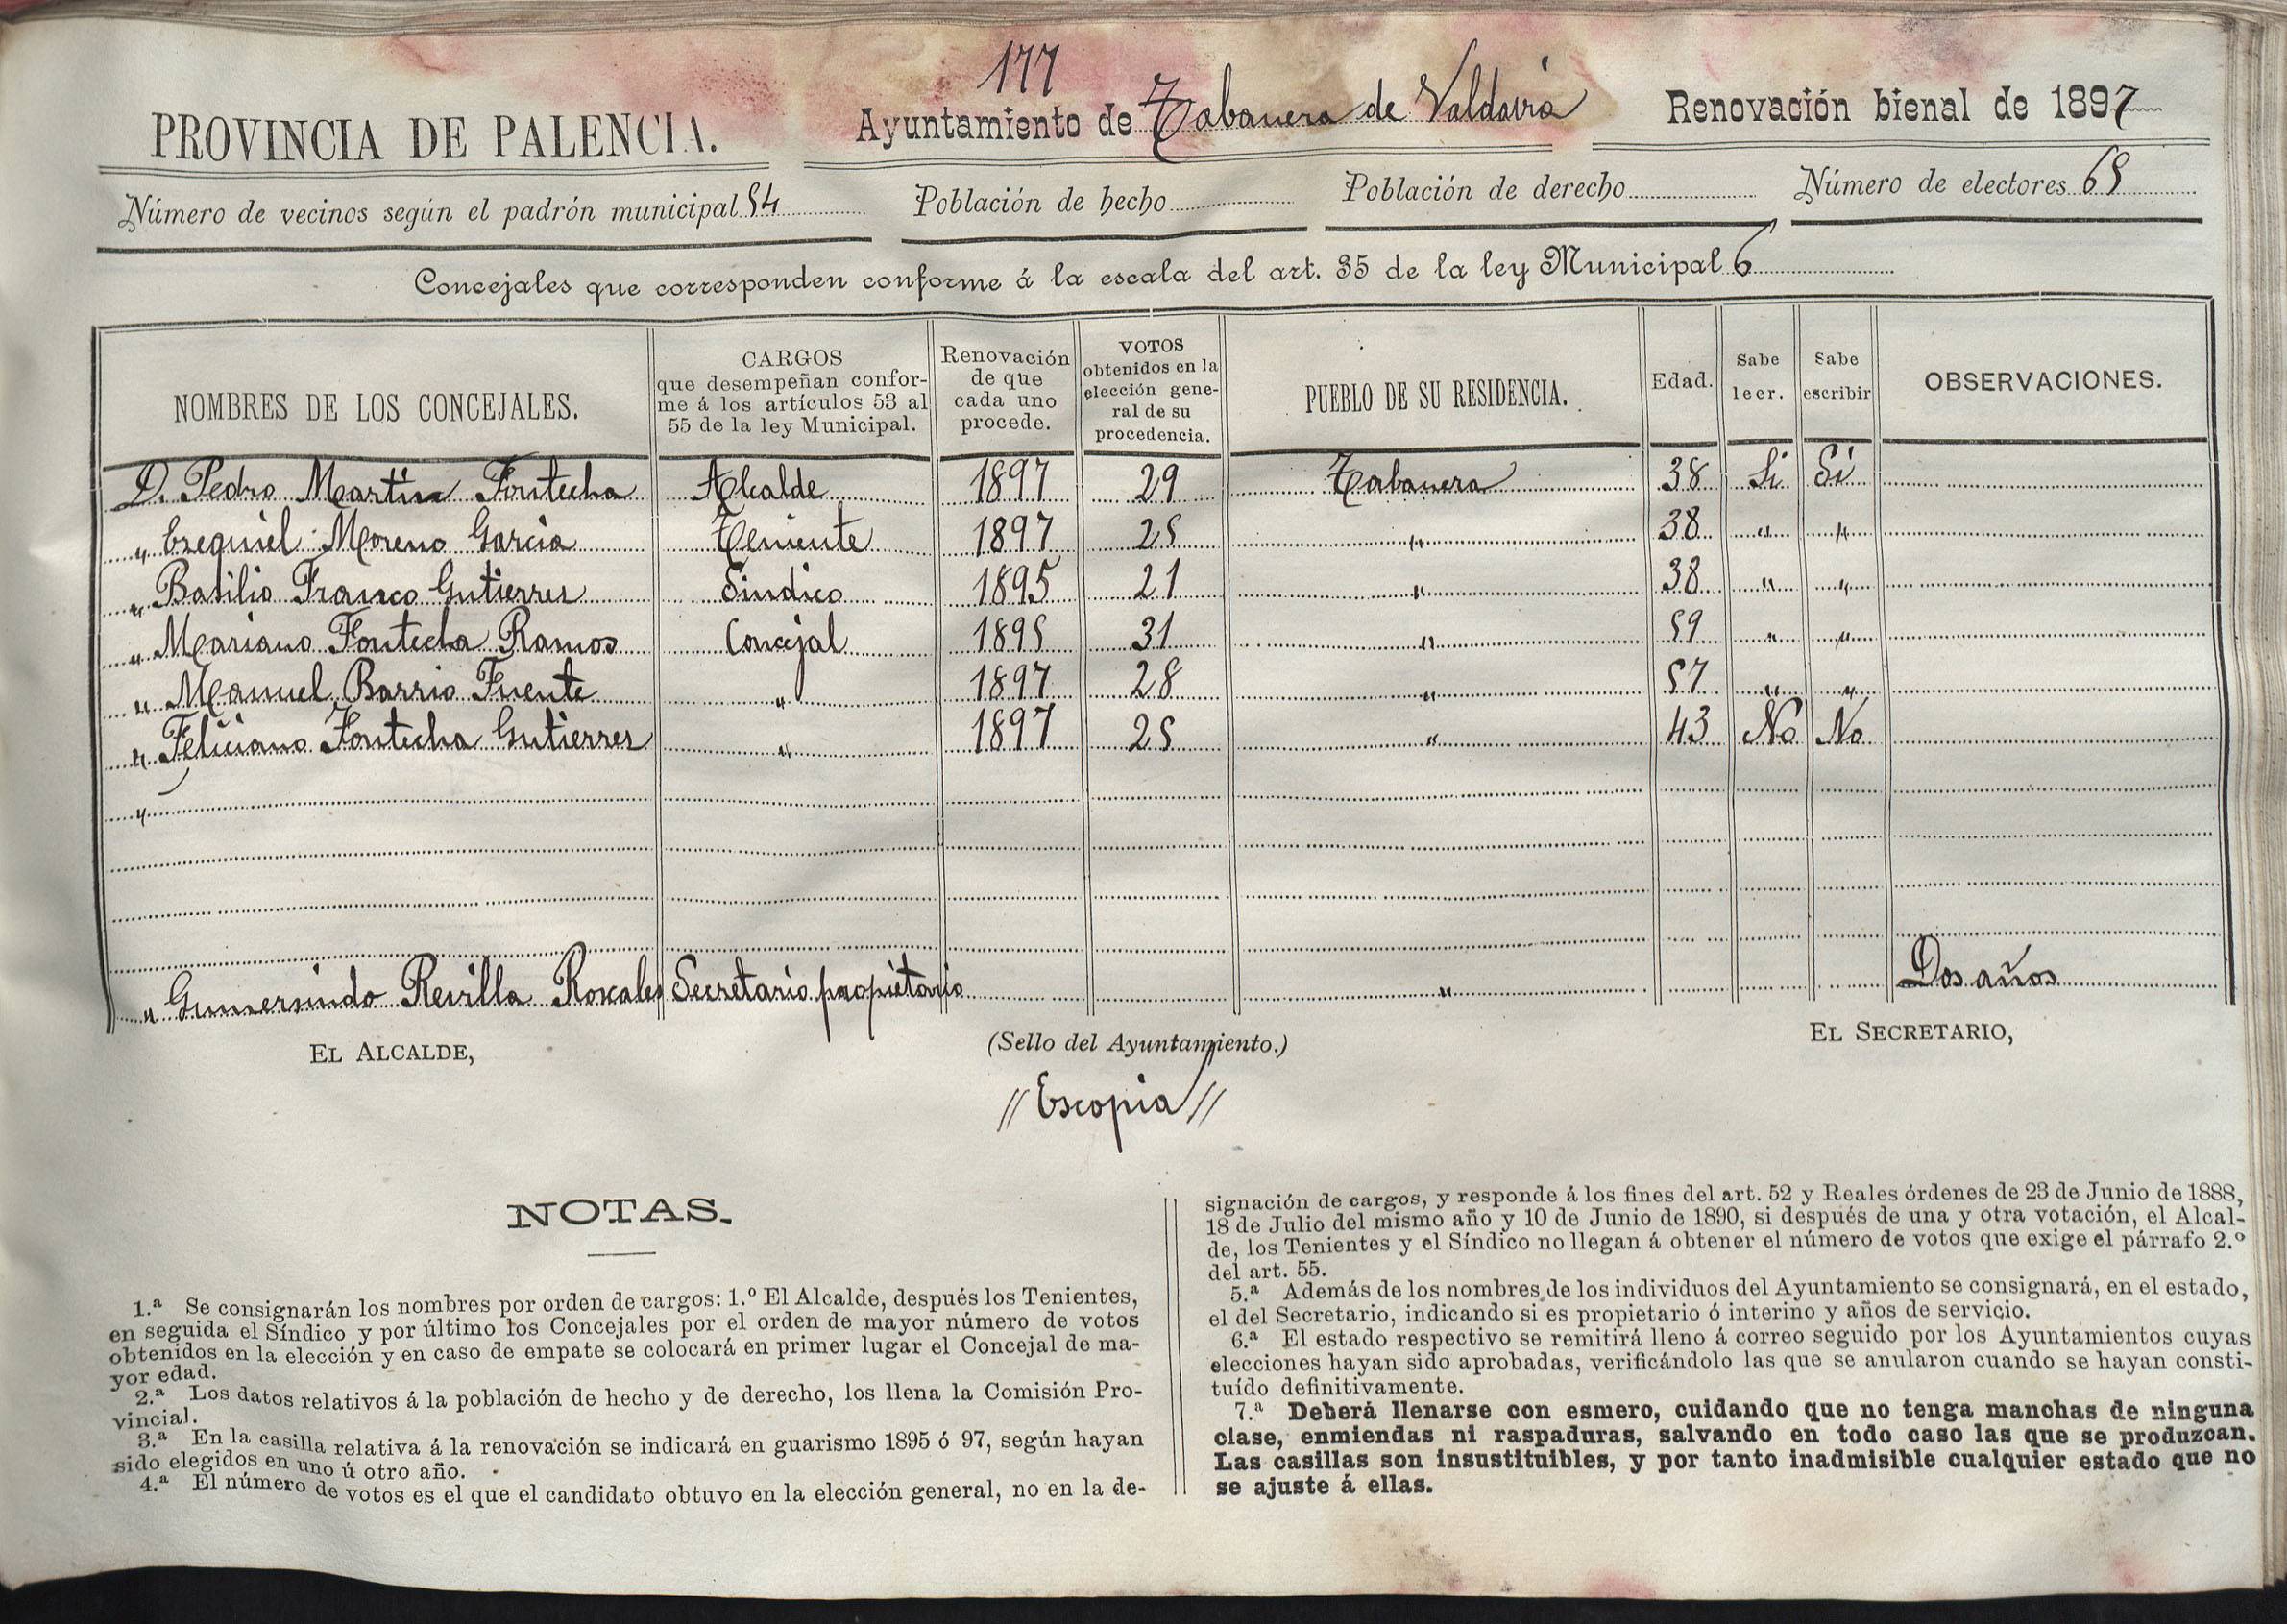 177
PROVINCIA DE PALENCIA. Ayuntamiento de Tabanera de Valdavia Renovación bienal de 1897
Número de vecinos según el padrón municipal 54 Población de hecho Población de derecho Número de electores 65
Concejales que corresponden conforme á la escala del art. 35 de la ley Municipal 6
NOMBRES DE LOS CONCEJALES. CARGOS que desempeñan confor- me á los artículos 53 al 55 de la ley Municipal. Renovación de que cada uno procede. VOTOS obtenidos en la elección gene- ral de su procedencia. PUEBLO DE SU RESIDENCIA. Edad. Sabe leer. Sabe escribir OBSERVACIONES.
D. Pedro Martin Fontecha Alcalde 1897 29 Tabanera 38 Si Si
" Ezequiel Moreno Garcia Teniente 1897 25 " 38 " "
" Basilio Franco Gutierrez Sindico 1895 21 " 38 " "
" Mariano Fontecha Ramos Concejal 1895 31 " 59 " "
" Manuel Barrio Fuente " 1897 28 " 57 " "
" Feliciano Fontecha Gutierrez " 1897 25 " 43 No No
"
" Gumersindo Revilla Roscales Secretario propietario " Dos años
EL ALCALDE, (Sello del Ayuntamiento.) EL SECRETARIO,
// Es copia //
NOTAS.
1.ª Se consignarán los nombres por orden de cargos: 1.º El Alcalde, después los Tenientes,
en seguida el Síndico y por último los Concejales por el orden de mayor número de votos
obtenidos en la elección y en caso de empate se colocará en primer lugar el Concejal de ma-
yor edad.
2.ª Los datos relativos á la población de hecho y de derecho, los llena la Comisión Pro-
vincial.
3.ª En la casilla relativa á la renovación se indicará en guarismo 1895 ó 97, según hayan
sido elegidos en uno ú otro año.
4.ª El número de votos es el que el candidato obtuvo en la elección general, no en la de-
signación de cargos, y responde á los fines del art. 52 y Reales órdenes de 23 de Junio de 1888,
18 de Julio del mismo año y 10 de Junio de 1890, si después de una y otra votación, el Alcal-
de, los Tenientes y el Síndico no llegan á obtener el número de votos que exige el párrafo 2.º
del art. 55.
5.ª Además de los nombres de los individuos del Ayuntamiento se consignará, en el estado,
el del Secretario, indicando si es propietario ó interino y años de servicio.
6.ª El estado respectivo se remitirá lleno á correo seguido por los Ayuntamientos cuyas
elecciones hayan sido aprobadas, verificándolo las que se anularon cuando se hayan consti-
tuído definitivamente.
7.ª Deberá llenarse con esmero, cuidando que no tenga manchas de ninguna
clase, enmiendas ni raspaduras, salvando en todo caso las que se produzcan.
Las casillas son insustituibles, y por tanto inadmisible cualquier estado que no
se ajuste á ellas.